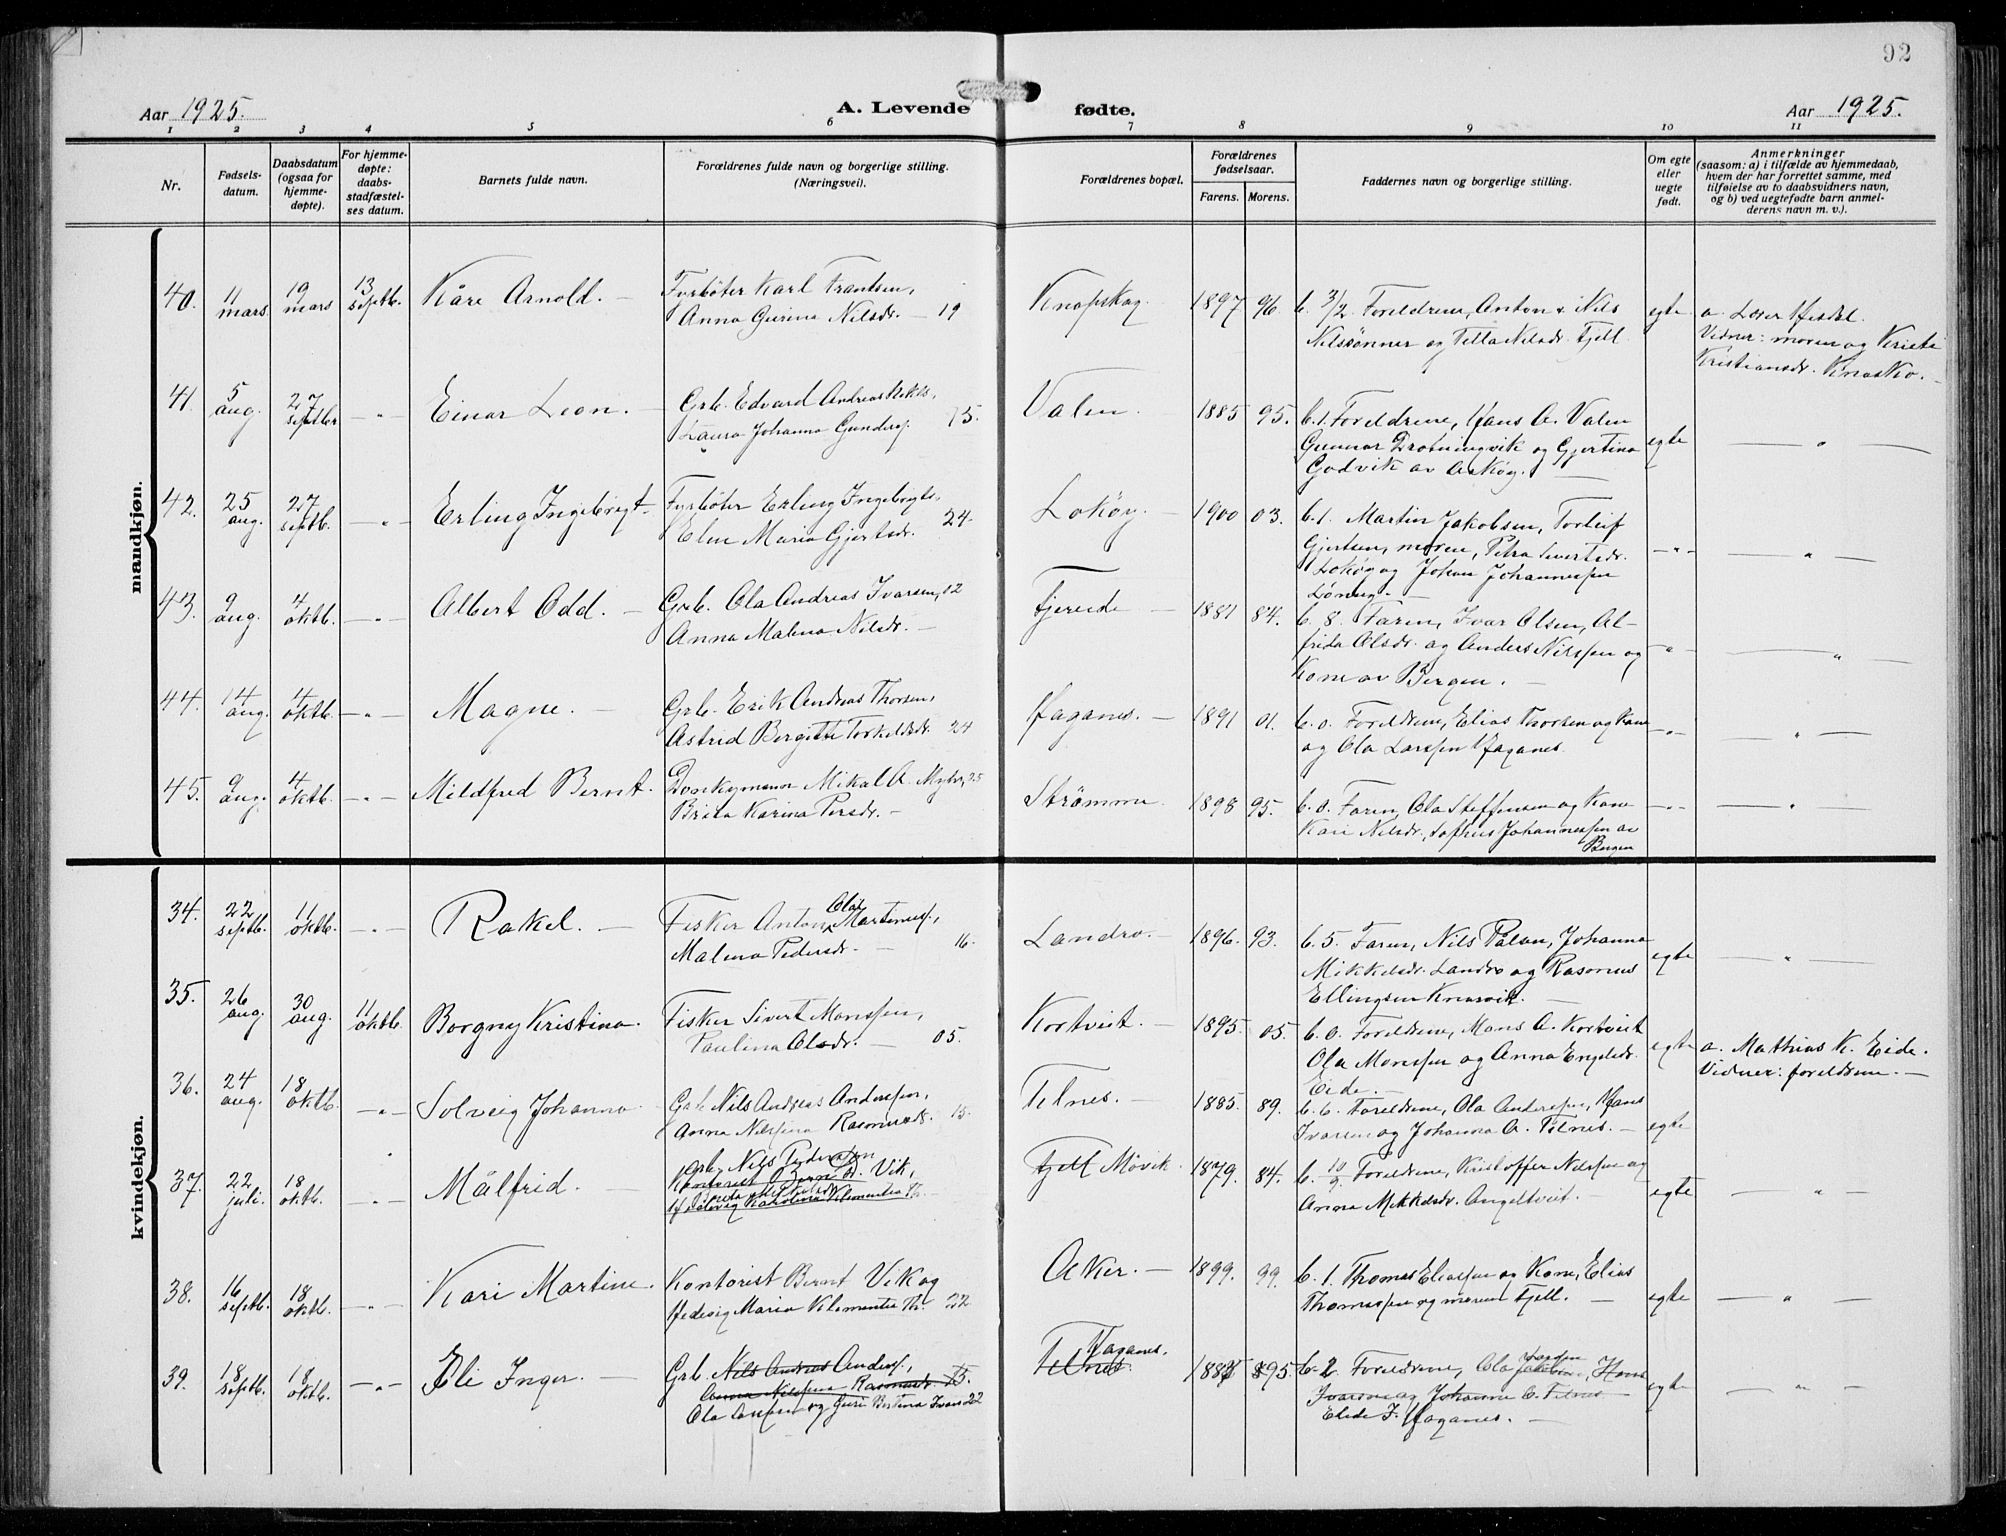 92
Aar 1925.
A. Levende fødte.
Aar 1925.
1 2 3 4 5 6 7 8 9 10 11
Nr.
Fødsels-
datum.
Daabsdatum
(ogsaa for
hjemme-
døpte).
For hjemme-
døpte:
daabs-
stadfæstel-
ses datum.
Barnets fulde navn.
Forældrenes fulde navn og borgerlige stilling.
(Næringsvei).
Forældrenes bopæl.
Forældrenes
fødselsaar.
Farens. Morens.
Faddernes navn og borgerlige stilling.
Om egte
eller
uegte
født.
Anmerkninger
(saasom: a) i tilfælde av hjemmedaab,
hvem der har forrettet samme, med
tilføielse av to daabsvidners navn,
og b) ved uegtefødte barn anmel-
derens navn m. v.).
mandkjøn.
40. 11 mars 19 mars 13 septb. Kåre Arnold. —
Fyrbøter Karl Frantsen,
Anna Gurina Nilsdr. — 19
Knapskog. 1897 96
b. 3/2 Foreldrene, Anton & Nils
Nilssønner og Tilla Nilsdr. Fjell
egte
a. Lærer
Vidner: moren og
Kristiansdr.
41. 5 aug. 27 septbr — " — Einar Leon. —
Grb. Edvard Andreas
Laura Johanna Gunders. 15.
Valen. 1885 95.
b. 1. Foreldrene, Hans A. Valen
Gunnar Drotningvik og Gjertina
Godvik av Askøy. —
egte — " —
42. 25 aug. 27 septb. — " — Erling Ingebrigt —
Fyrbøter Erling Ingebrigts.
Elen Maria Gjertsdr. 24.
Lokøy — 1900 03.
b. 1. Martin Jakobsen, Torleif
Gjertsen, moren, Petra Sivertsdr.
Lokøy og Johan Johannessen
Løning. —
— " — — " —
43. 9 aug. 4 oktb. — " — Albert Odd. —
Grb. Ola Andreas Ivarsen, 02
Anna Malena Nilsdr. —
Fjereide — 1881 84.
b. 8. Faren, Ivar Olsen, Al-
frida Olsdr. og Anders Nilssen og
Kone av Bergen. —
— " — — " —
44. 14 aug. 4 oktb. — " — Magne. —
Grb. Erik Andreas Thorsen,
Astrid Bergitte Torkelsdr. 24
Haganes. — 1891 01.
b. 0. Foreldrene, Elias Thorsen og Kone
og Ola Larssen Haganes.
— " — — " —
45. 9 aug. 4 oktb. — " — Mildfred Bernt.
Donkeymann Mikal A. 25
Brita Karina Persdr. —
Strømme 1898 95.
b. 0. Faren, Ola Steffensen og Kone
Kari Nilsdr., Sofus Johannessen av
Bergen
— " — — " —
kvindekjøn.
34. 22 septb. 11 oktb. — " — Rakel. —
Ola
Fisker Anton Martinus.,
Malena Pedersdr. — 16.
Landro. — 1896. 93.
b. 5. Faren, Nils Pålan, Johanna
Mikkelsdr. Landro og Rasmus
Ellingsen Knarvik. —
egte — " —
35. 26 aug. 30 aug. 11 oktb. Borgny Kristina.
Fisker Sivert Monssen,
Paulina Olsdr. — 05.
Kortveit. — 1895. 05.
b. 0. Foreldrene, Mons A. Kortveit
Ola Monssen og Anna Engelsdr.
Eide. —
egte
a. Mathias K. Eide.
Vidner: foreldrene. —
36. 24 aug. 18 oktb. — " — Solveig Johanna
Grb. Nils Andreas Anderssen,
Anna Nilssina Rasmusdr. 15.
Telnes. — 1885. 89.
b. 6. Foreldrene, Ola Anderssen, Hans
Ivarsen og Johanna A. Telnes. —
egte
37. 22 juli. 18 oktb. — " — Målfrid. —
Grb. Nils Pedersen
Kontorist Bernt A. Vik,
Hedevig Karolina Klementia Th. —
Fjell Møvik. 1879. 84.
b. 10/9. Foreldrene, Kristoffer Nilssen og
Anna Mikkelsdr. Angeltveit.
egte — " —
38. 16 septb. 18 oktb. — " — Kari Martine.
Kontorist Bernt Vik og
Hedevig Maria Klementia Th. 22
Aker. — 1899. 99.
b. 1. Thomas Eliassen og Kone, Elias
Thomassen og moren Fjell. —
egte — " —
39. 18 septb. 18 oktb. — " — Eli Inger. —
Grb. Nils Andreas Anders.,
Anna Nilssina Rasmusdr. 15.
Ola og Guri Bertina Ivars 22
Haganes.
Telnes. 1885 95.
b. 2. Foreldrene, Ola Hans
Ivarsen og Johanna A. Telnes
Haganes. —
egte — " —